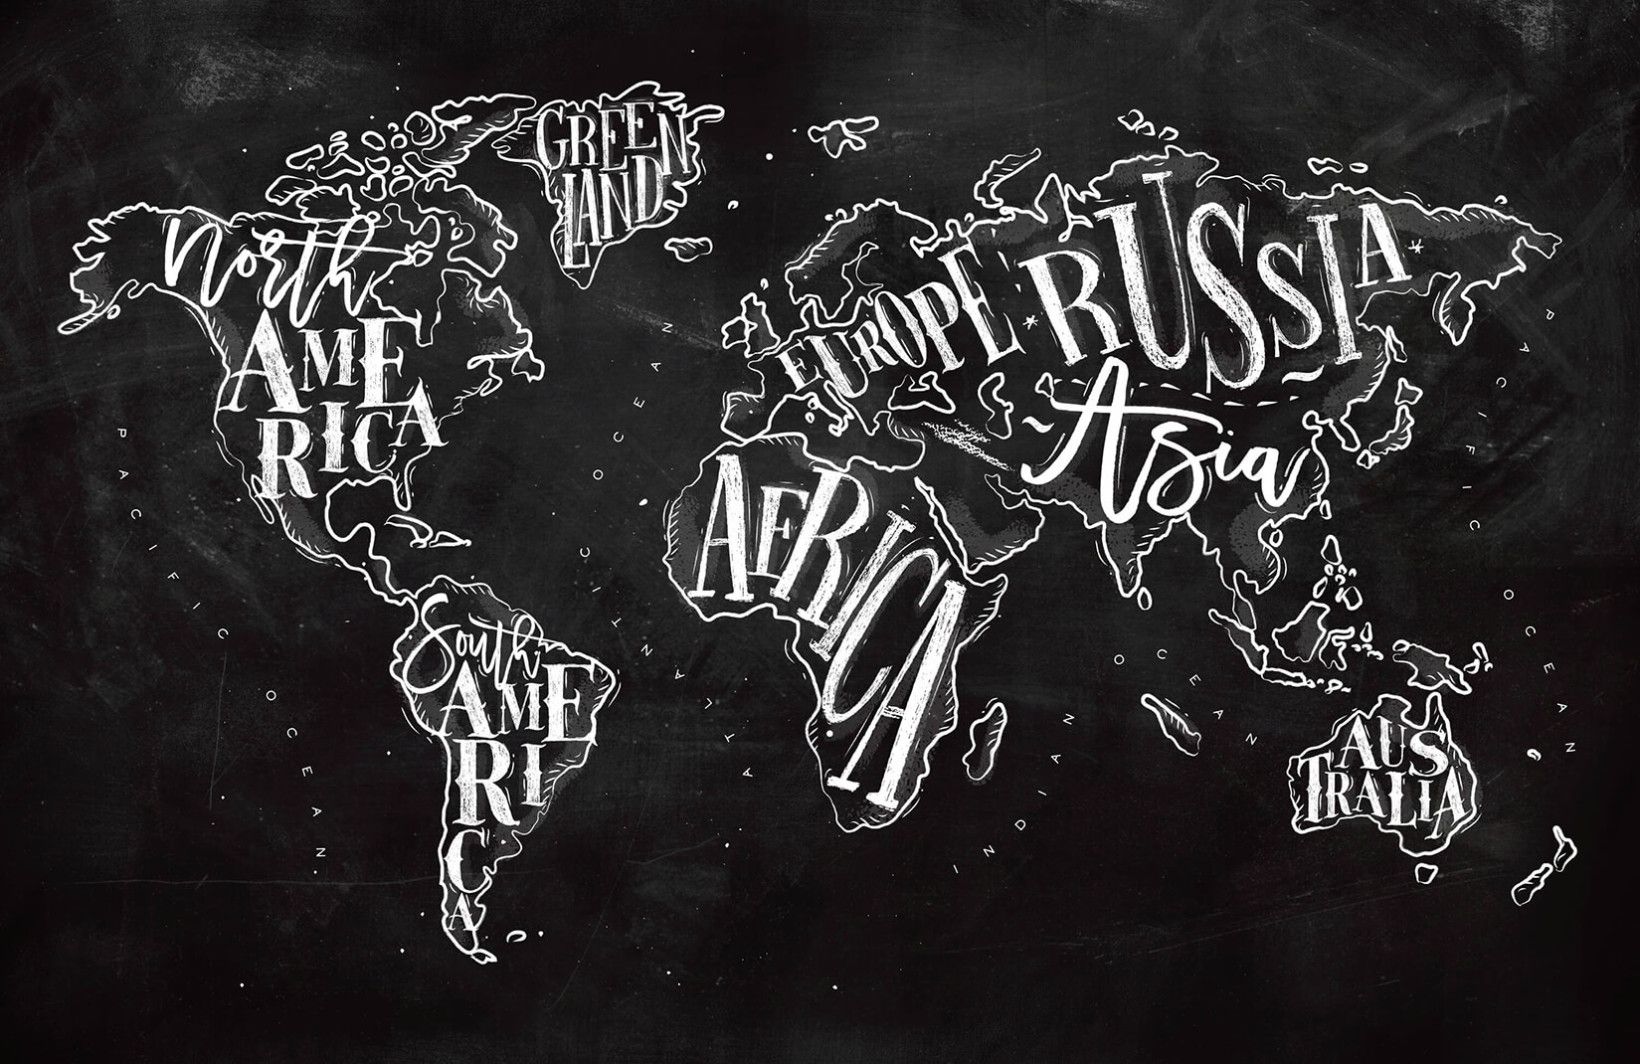 GREEN
LAND
North
AME
RICA
EUROPE
RUSSIA
Asia
AFRICA
South
AME
RI
C
A
AUS
TRALIA
PACIFIC OCEAN
ATLANTIC OCEAN
INDIAN OCEAN
PACIFIC OCEAN